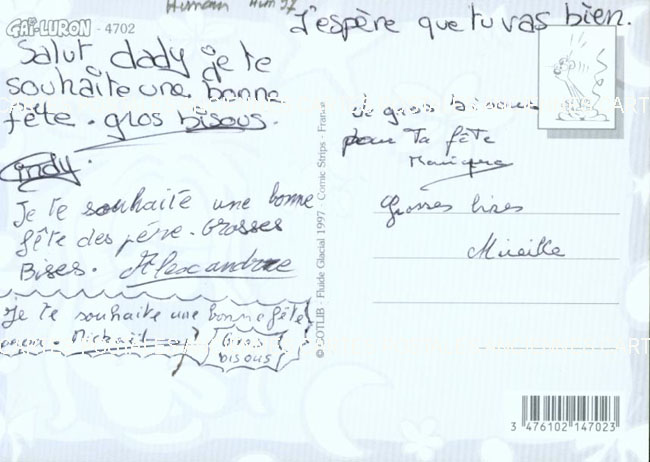 Humour Hum 97
GAI-LURON - 4702
J'espère que tu vas bien.
Salut dady je te
souhaite une bonne
fête. gros bisous.
Cindy.
Je te souhaite une bonne
fête des père. Grosses
Bises. Alexandre
Je te souhaite une bonne fête
Mickaël
Gros
bisous
© GOTLIB - Fluide Glacial 1997 - Comic Strips - France
de gros bisous
pour Ta fête
Monique
Grosses bises
Mireille
3 476102 147023